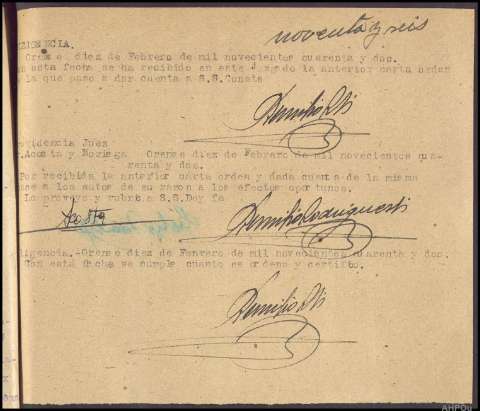 noventa y seis
IGENCIA.
Orense diez de Febrero de mil novecientos cuarenta y dos.
n esta fecha se ha recibido en este Juzgado la anterior carta orden
e la que paso a dar cuenta a S.S. Conste
videncia Juez
.Acosta y Noriega. Orense diez de Febrero de mil novecientos cua-
renta y dos.
Por recibida la anterior carta orden y dada cuenta de la misma
nse a los autos de su razon a los efectos oportunos.
Lo proveyo y rubrica S.S. Doy fe
Acosta
ligencia.-Orense diez de Fenrero de mil novecientos cuarenta y dos.
Con esta fecha se cumple cuanto es ordeno y certifto.
AHPOu